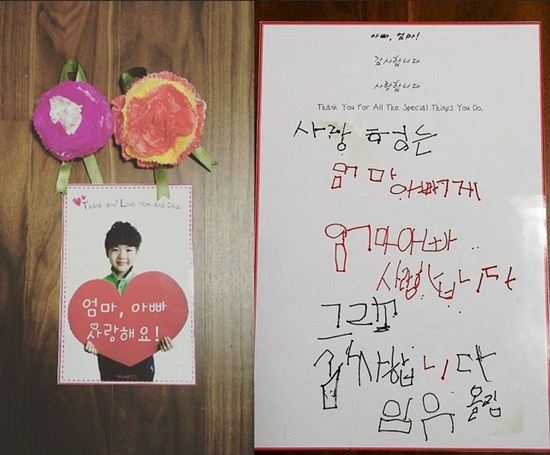 Thank you! Love Mom and Dad.
엄마, 아빠
사랑해요!
아빠, 엄마!
감사합니다
사랑합니다
Thank You For All The Special Things You Do.
사랑
는
엄마아빠에게
엄마아빠
사랑합니다
그리고
감사합니다
올림